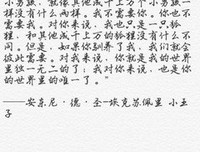 小男孩，就像其他成千上万个小男孩一样
没有什么两样。我不需要你。你也不
需要我。对你来说，我也只是一只狐
狸，和其他成千上万的狐狸没有什么不
同。但是，如果你驯养了我，我们就会
彼此需要。对我来说，你就是我的世界
里独一无二的了；我对你来说，也是你
的世界里的唯一了。”
——安东尼·德·圣-埃克苏佩里 小王
子